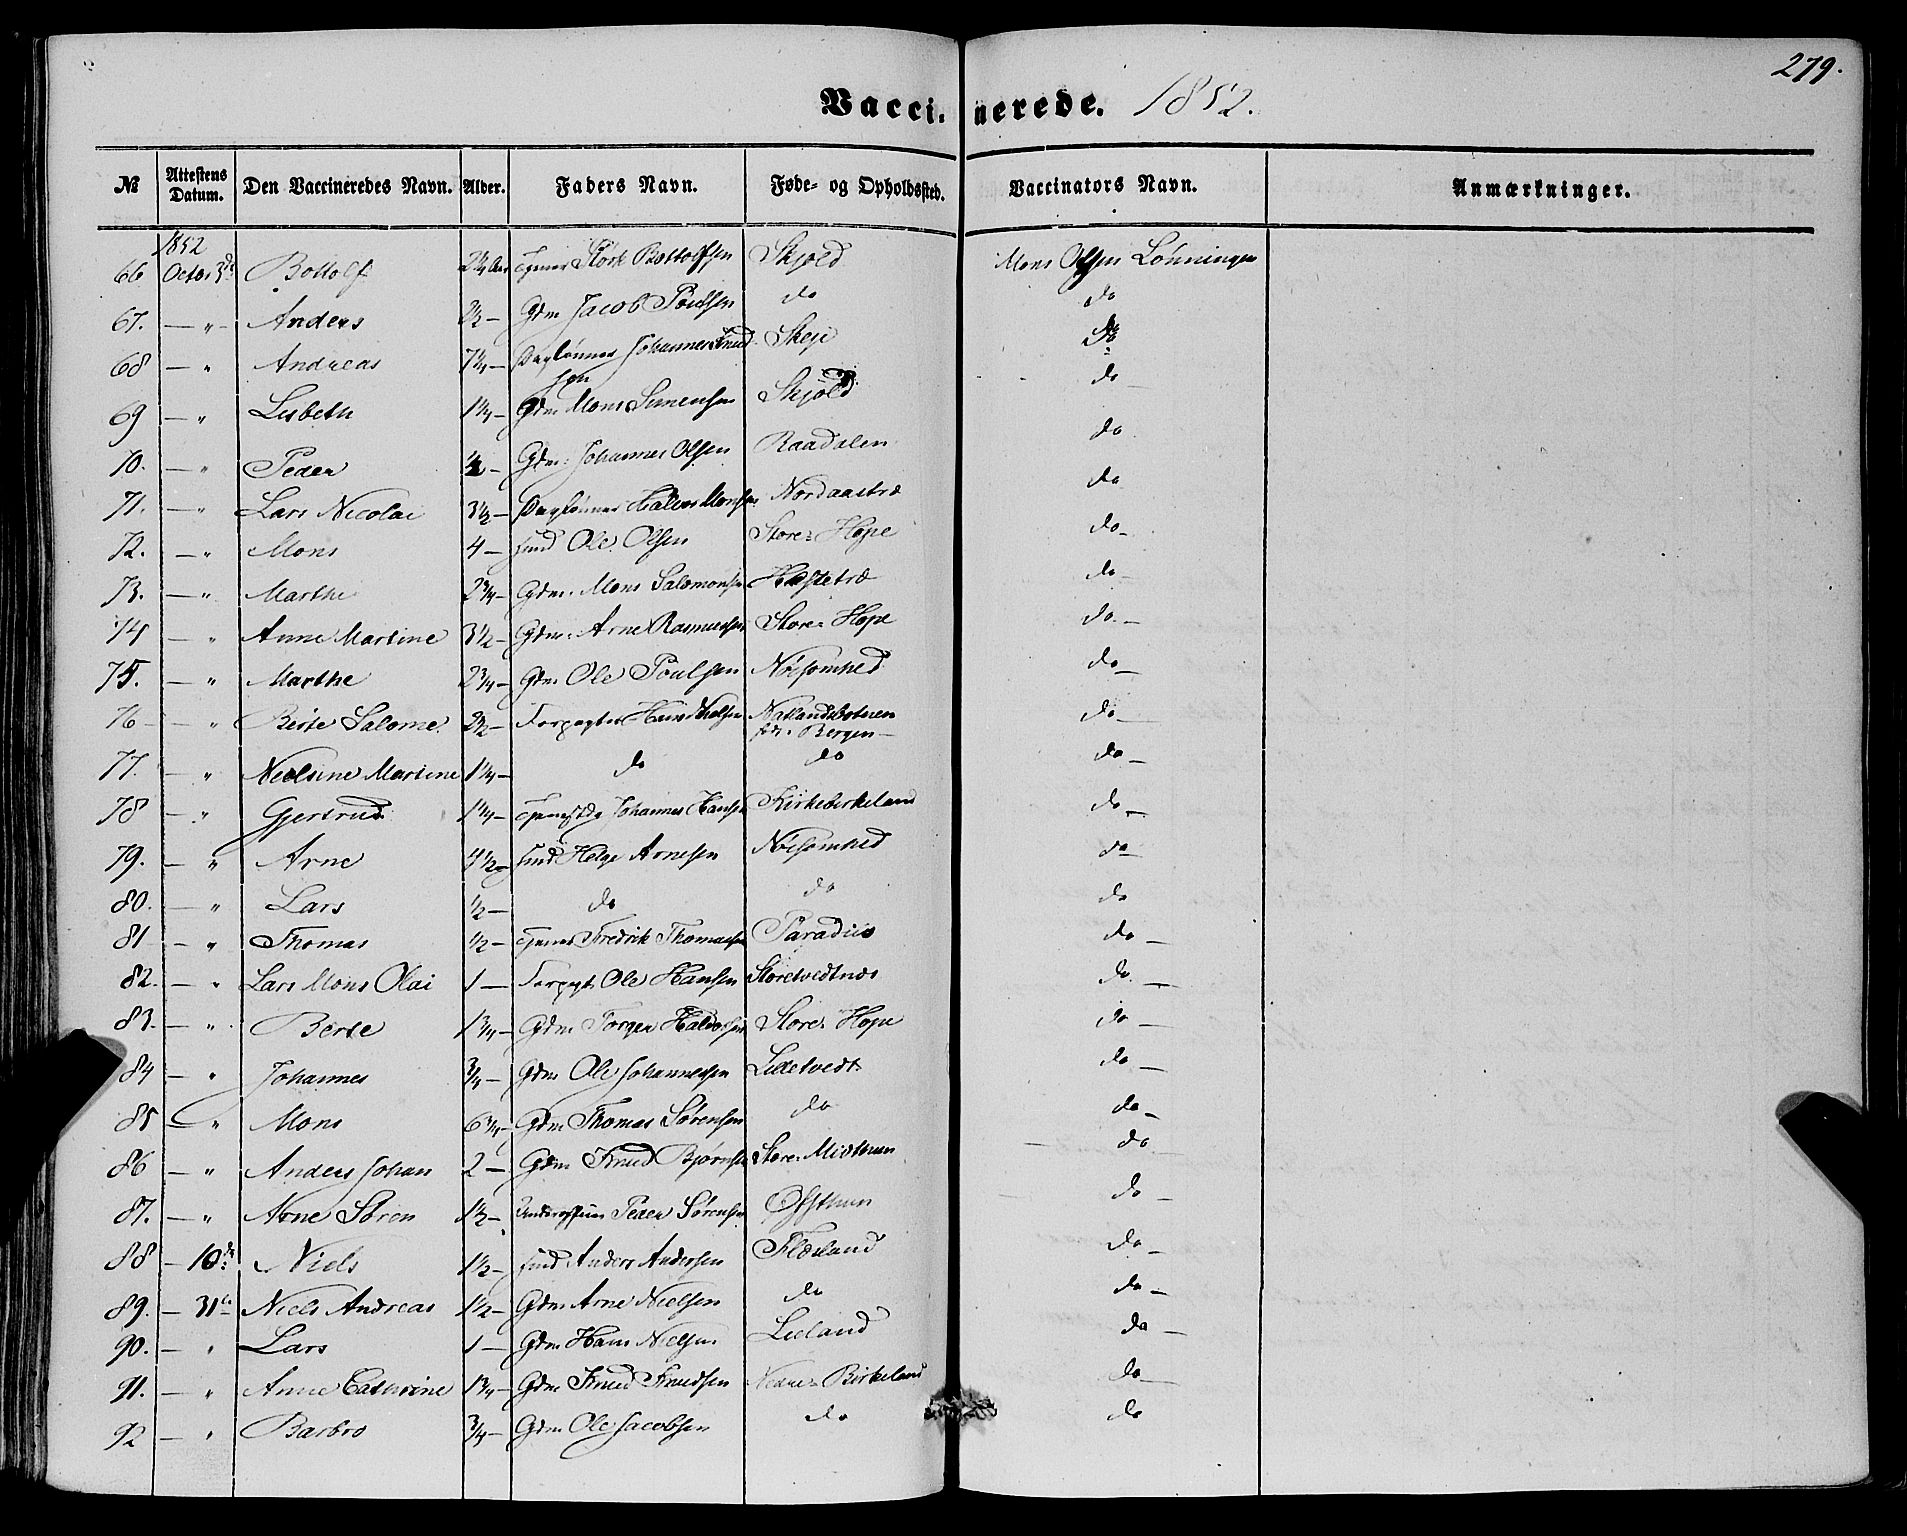 279.
Vaccinerede. 1852.
№ Attestens Datum. Den Vaccineredes Navn. Alder. Faders Navn. Føde- og Opholdssted. Vaccinators Navn. Anmærkninger.
1852
66 Octor 3de Bottolf Störk Bottolfsen Skjold Mons Olsen Lönningen
67. — " Anders 2½ — Gdm Jacob Poulsen do do
68 — " Andreas 7¼ — Daglönner Johannes Knud- Skeje do
sen
69 — " Lisbeth 1¼ — Gdm Mons Simensen Skjold do
70. — " Peder ½ — Gdm: Johannes Olsen Raadalen do
71. — " Lars Nicolai 3½ — Daglönner Monsen Nordaastræ do
72. — " Mons 4 — Ole Olsen Store Hope do
73. — " Marthe 2¾ — Gdm. Mons Salomonsen do
74 — " Anne Martine 3½ — Gdm. Arne Rasmussen Store Hope do. —
75. — " Marthe 2¾ — Gdm Ole Poulsen Nöisomhed do —
76 — " Berte Salome 2½ — Forpagter Natlandsbotnen do —
Bergen —
77. — " Nielsine Martine 1¼ — do do do —
78 — " Gjertrud 1¼ — Johannes Hansen Kirkebirkeland do —
79. — " Arne ½ — Helge Arnesen Nöisomhed do
80. — " Lars ½ — do do do
81 — " Thomas ½ — Fredrik Thomassen Paradiis do —
82. — " Lars Mons Olai 1 — Forpagt. Ole Hansen Storetvedtnæs do. —
83. — " Berte 1¾ — Gdm Torger Haldorsen Store Hope do —
84 — " Johannes ¾ — Gdm Ole Johannessen Lilletvedt do —
85 — " Mons 6¾ — Gdm Thomas Sörensen do do —
86 — " Anders Johan 2 — Gdm Knud Björnsen Store Midthun do
87. — " Arne Sören 1½ — Peder Sörensen Øfsthun do —
88 — 10de Niels 1½ — Anders Andersen Flesland do —
89. — 31te Niels Andreas 1½ — Gdm Arne Nielsen do do —
90. — " Lars 1 — Gdm Hans Nielsen Lieland do —
91. — " Anne Cathrine 1¾ — Gdm Knud Knudsen Nedre Birkeland do —
92 — " Barbro ¾ — Gdm Ole Jacobsen do do